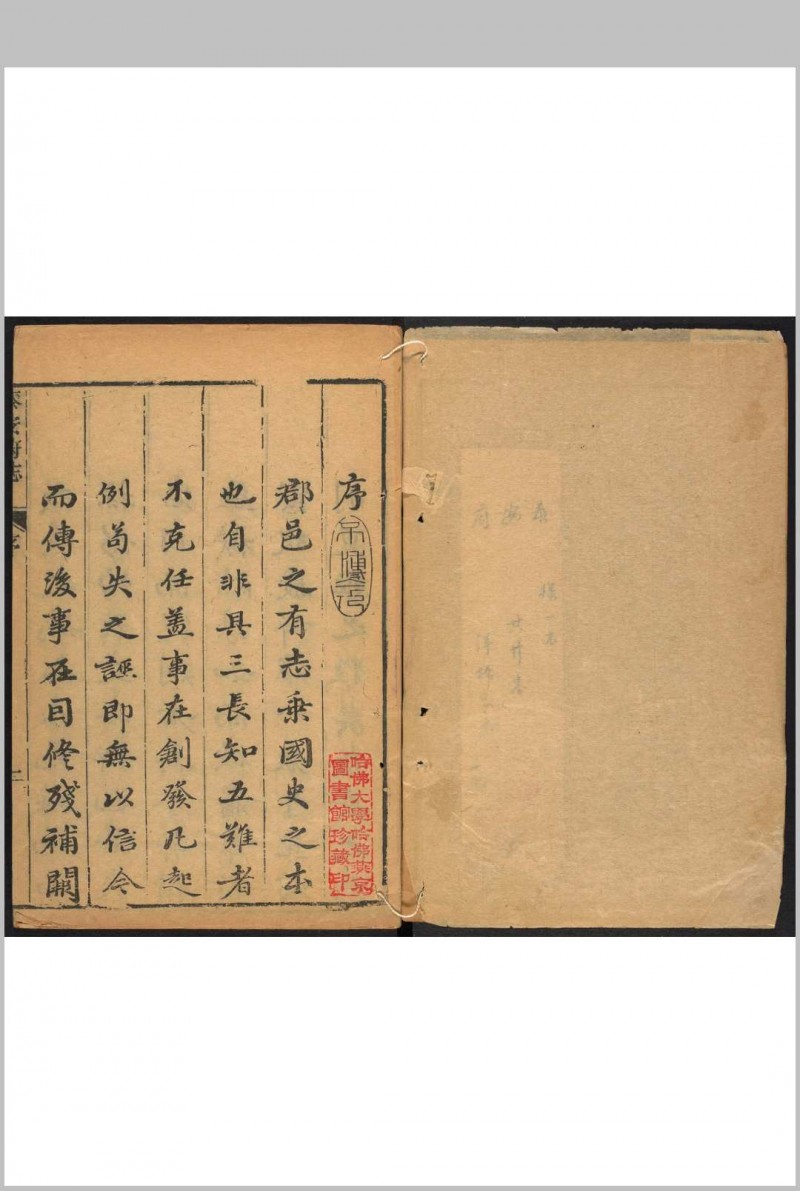 序
郡邑之有志乗國史之本
也自非具三長知五難者
不克任盖事在創發凡起
例苟失之誣即無以信今
而傳後事在因修殘補闕
哈佛大學哈佛燕京
圖書館珍藏印
泰安府志